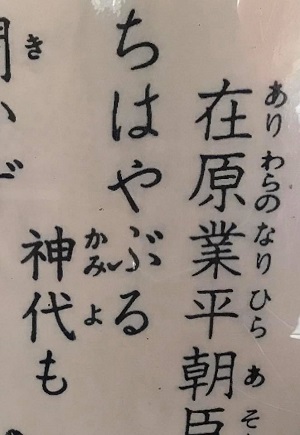 在原業平朝臣
ありわらのなりひらあそ
ちはやぶる
神代も
かみよ
き